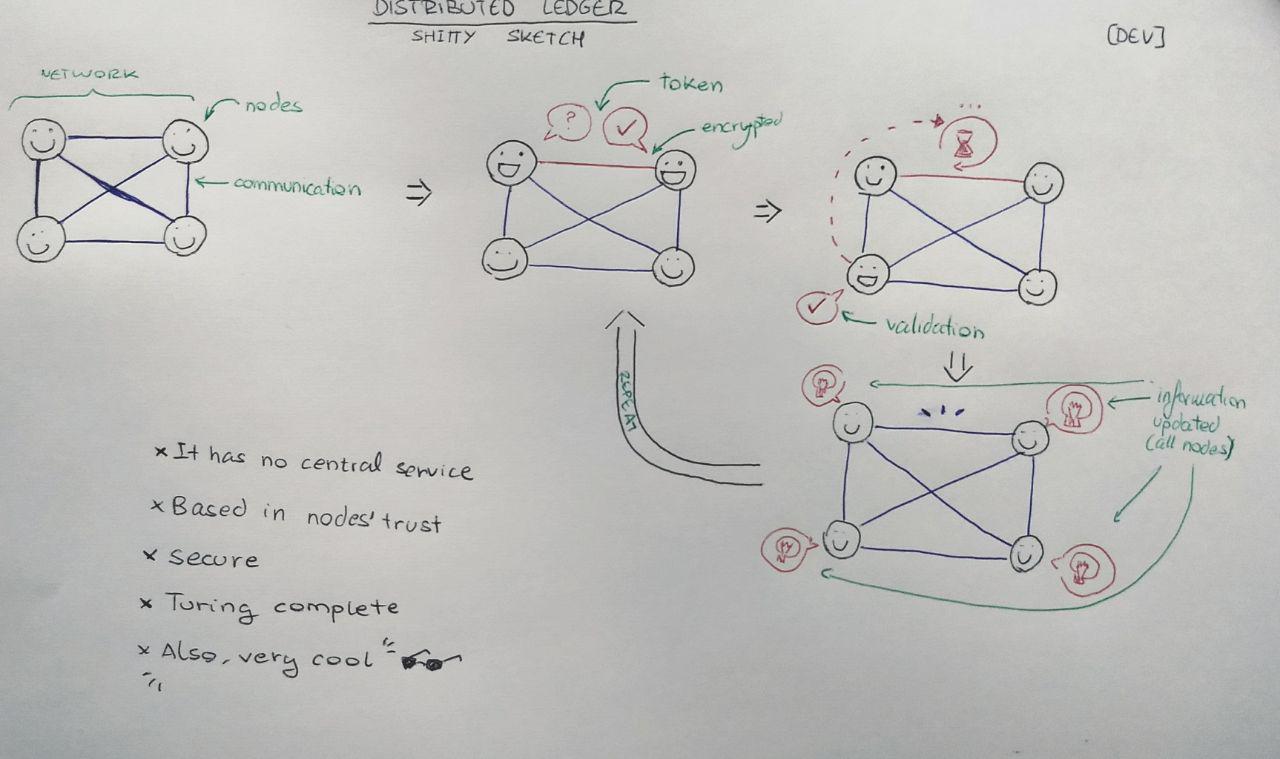 DISTRIBUTED LEDGER
SHITTY SKETCH
[DEV]
NETWORK
nodes
communication
token
?
encrypted
...
validation
information
updated
(all nodes)
REPEAT
x It has no central service
x Based in nodes' trust
x secure
x Turing complete
x Also, very cool